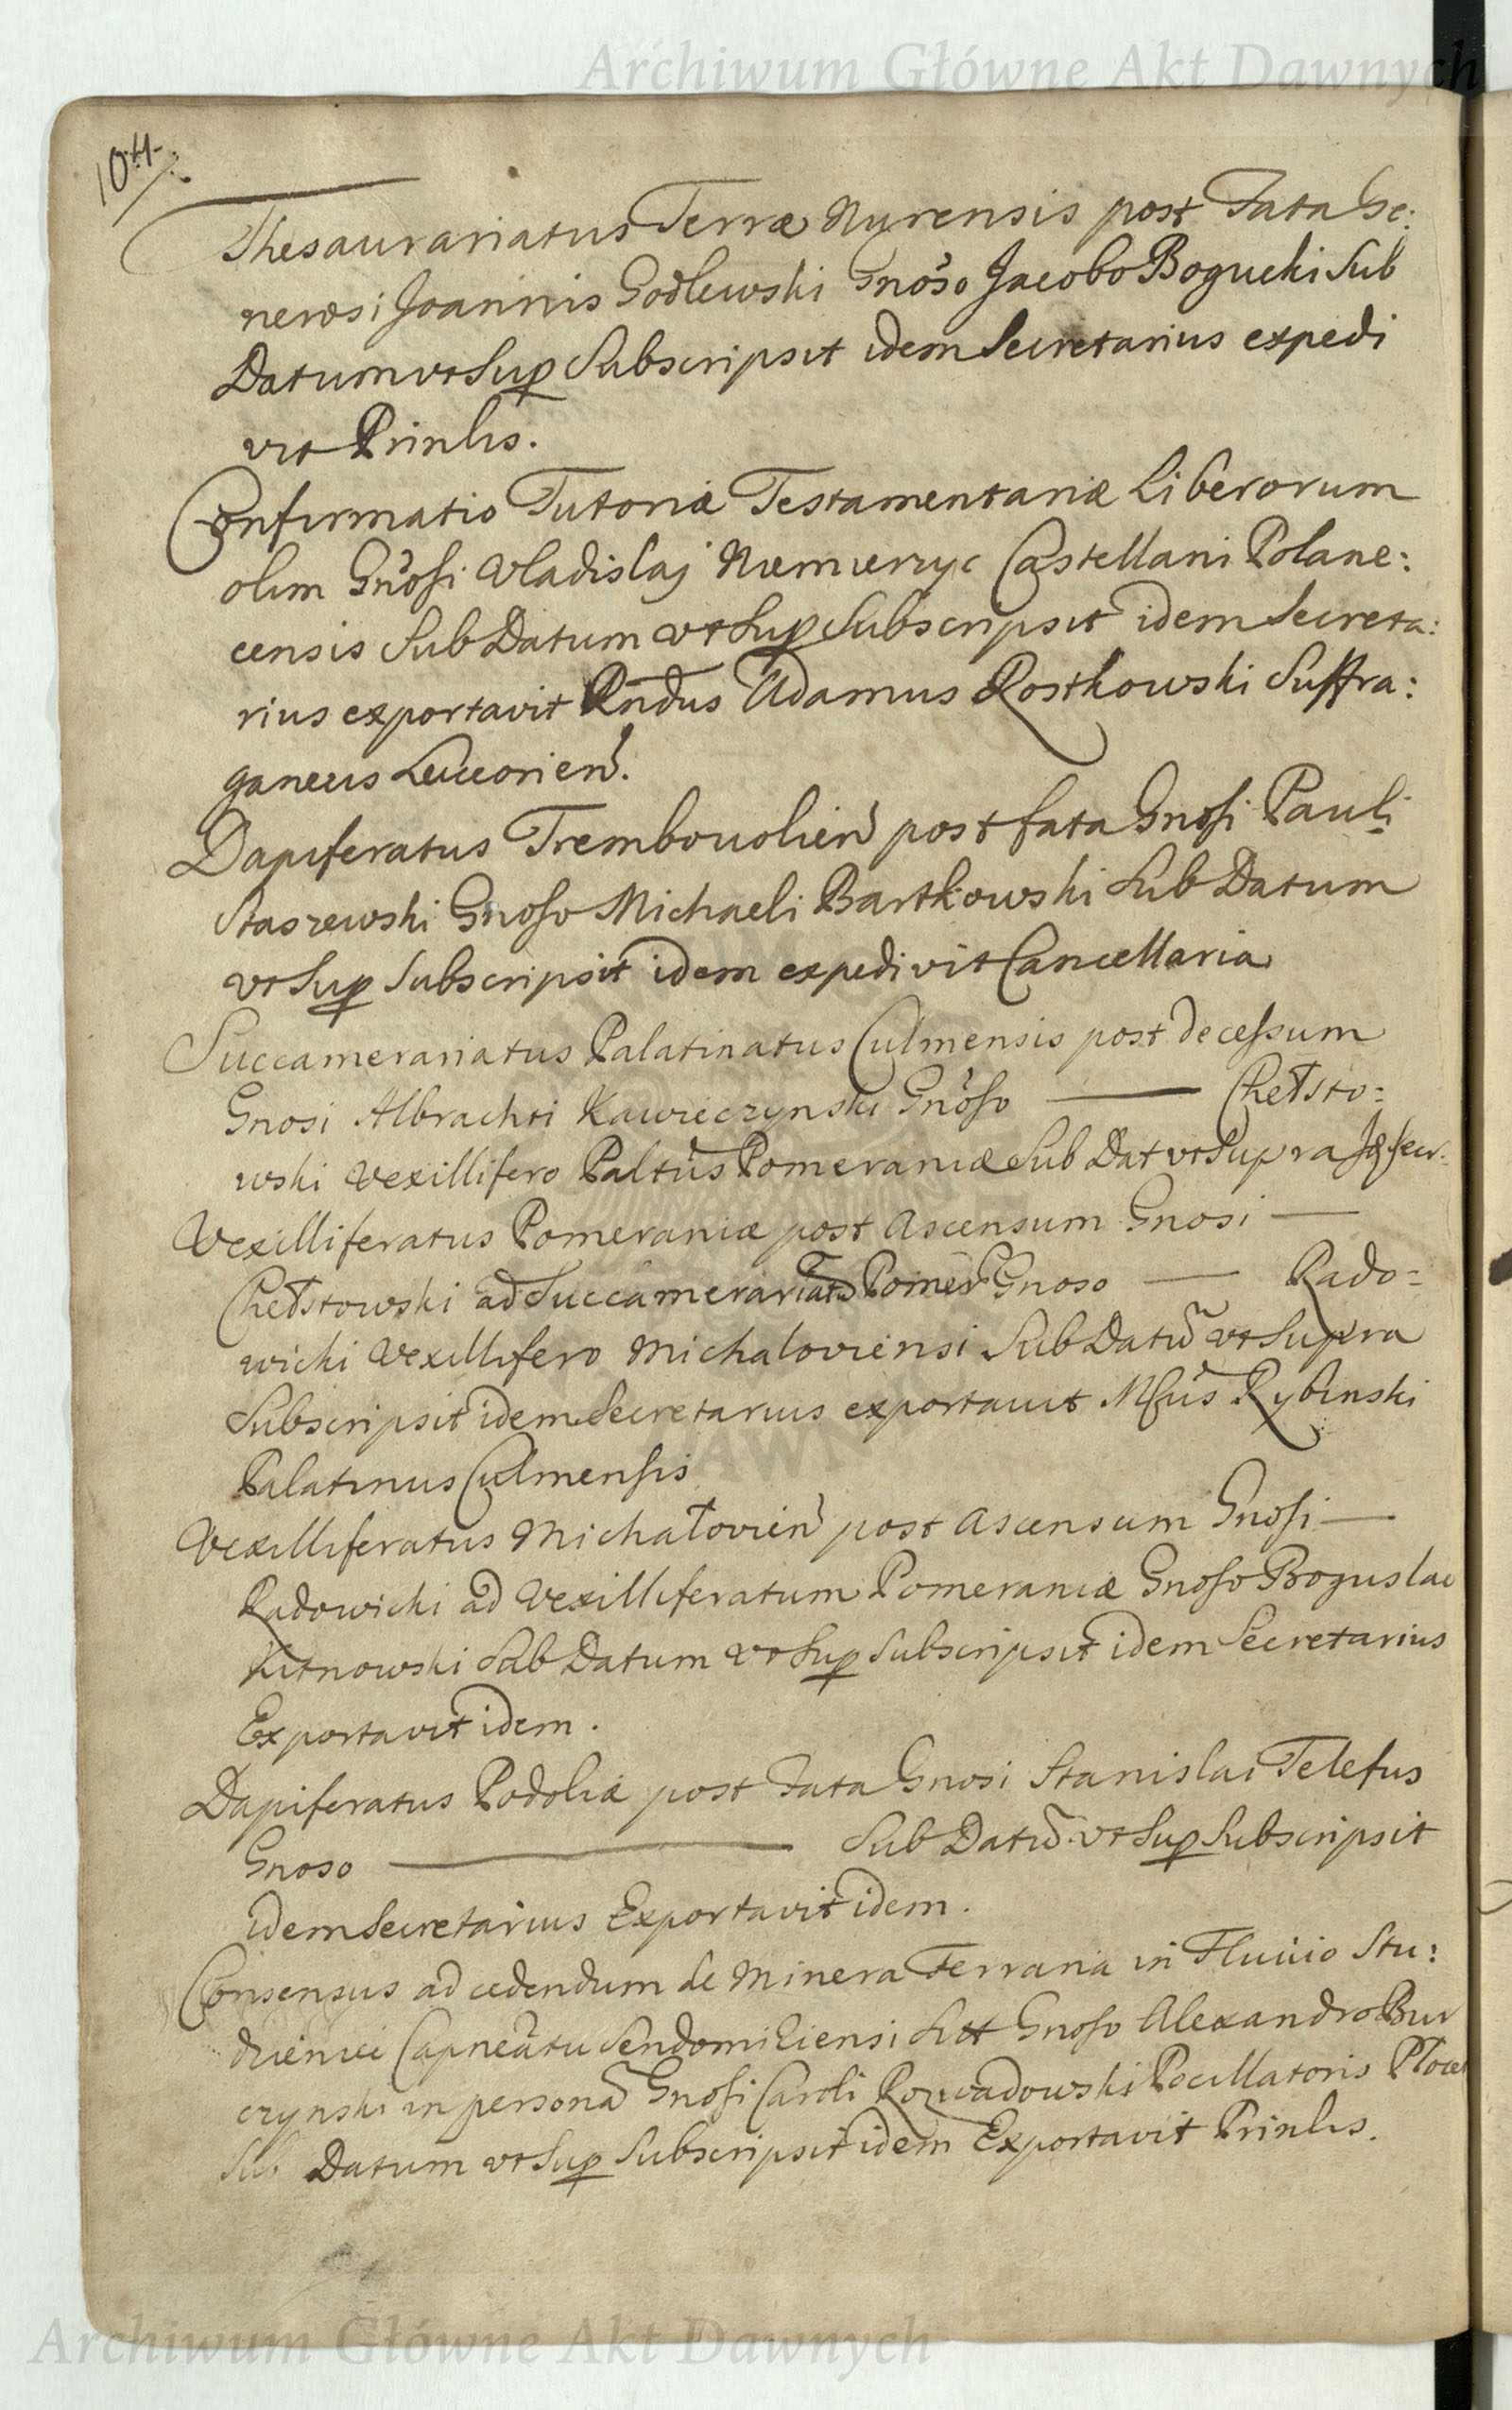 Archiwum Główne Akt Dawnych
104
Thesaurariatus Terræ Nurensis post Fata Ge:
nerosi Joannis Godlewski Gnoso Jacobo Bogucki Sub
Datum vt Sup Subscripsit idem Secretarius expedi
vit Prinlis.
Confirmatio Tutoriæ Testamentariæ Liberorum
olim Gnosi Vladislaj Niemierzyc Castellani Polane:
censis Sub Datum vt Sup Subscripsit idem Secreta:
rius exportavit Rndus Adamus Rostkowski Suffra:
ganeus Luceorien.
Dapiferatus Trembovolien post fata Gnosi Pauli
Staszewski Gnoso Michaeli Bartkowski Sub Datum
vt Sup Subscripsit idem expedivit Cancellaria
Succamerariatus Palatinatus Culmensis post decessum
Gnosi Albrachti Kawieczynski Gnoso — Chełsto=
wski Vexillifero Paltus Pomeraniæ Sub Dat vt Supra Id Secr.
Vexilliferatus Pomeraniæ post Ascensum Gnosi —
Chełstowski ad Succamerariatū Pomer Gnoso — Rado=
wicki Vexillifero Michaloviensi Sub Datū vt Supra
Subscripsit idem Secretarius exportavit Mfus Rybinski
Palatinus Culmensis
Vexilliferatus Michałovien post Ascensum Gnosi —
Radowicki ad Vexilliferatum Pomeraniæ Gnoso Boguslao
Kitnowski Sub Datum vt Sup Subscripsit idem Secretarius
Exportavit idem.
Dapiferatus Podoliæ post Fata Gnosi Stanislai Telefus
Gnoso — Sub Datū vt Sup Subscripsit
idem Secretarius Exportavit idem.
Consensus ad cedendum de Minera Ferraria in Fluvio Stu:
dzieniec Capneatu Sendomiriensi Gnoso Alexandro Bur
czynski in persona Gnosi Caroli Rozwadowski Pocillatoris Płocen
Sub Datum vt Sup Subscripsit idem Exportavit Prinlis.
Archiwum Główne Akt Dawnych